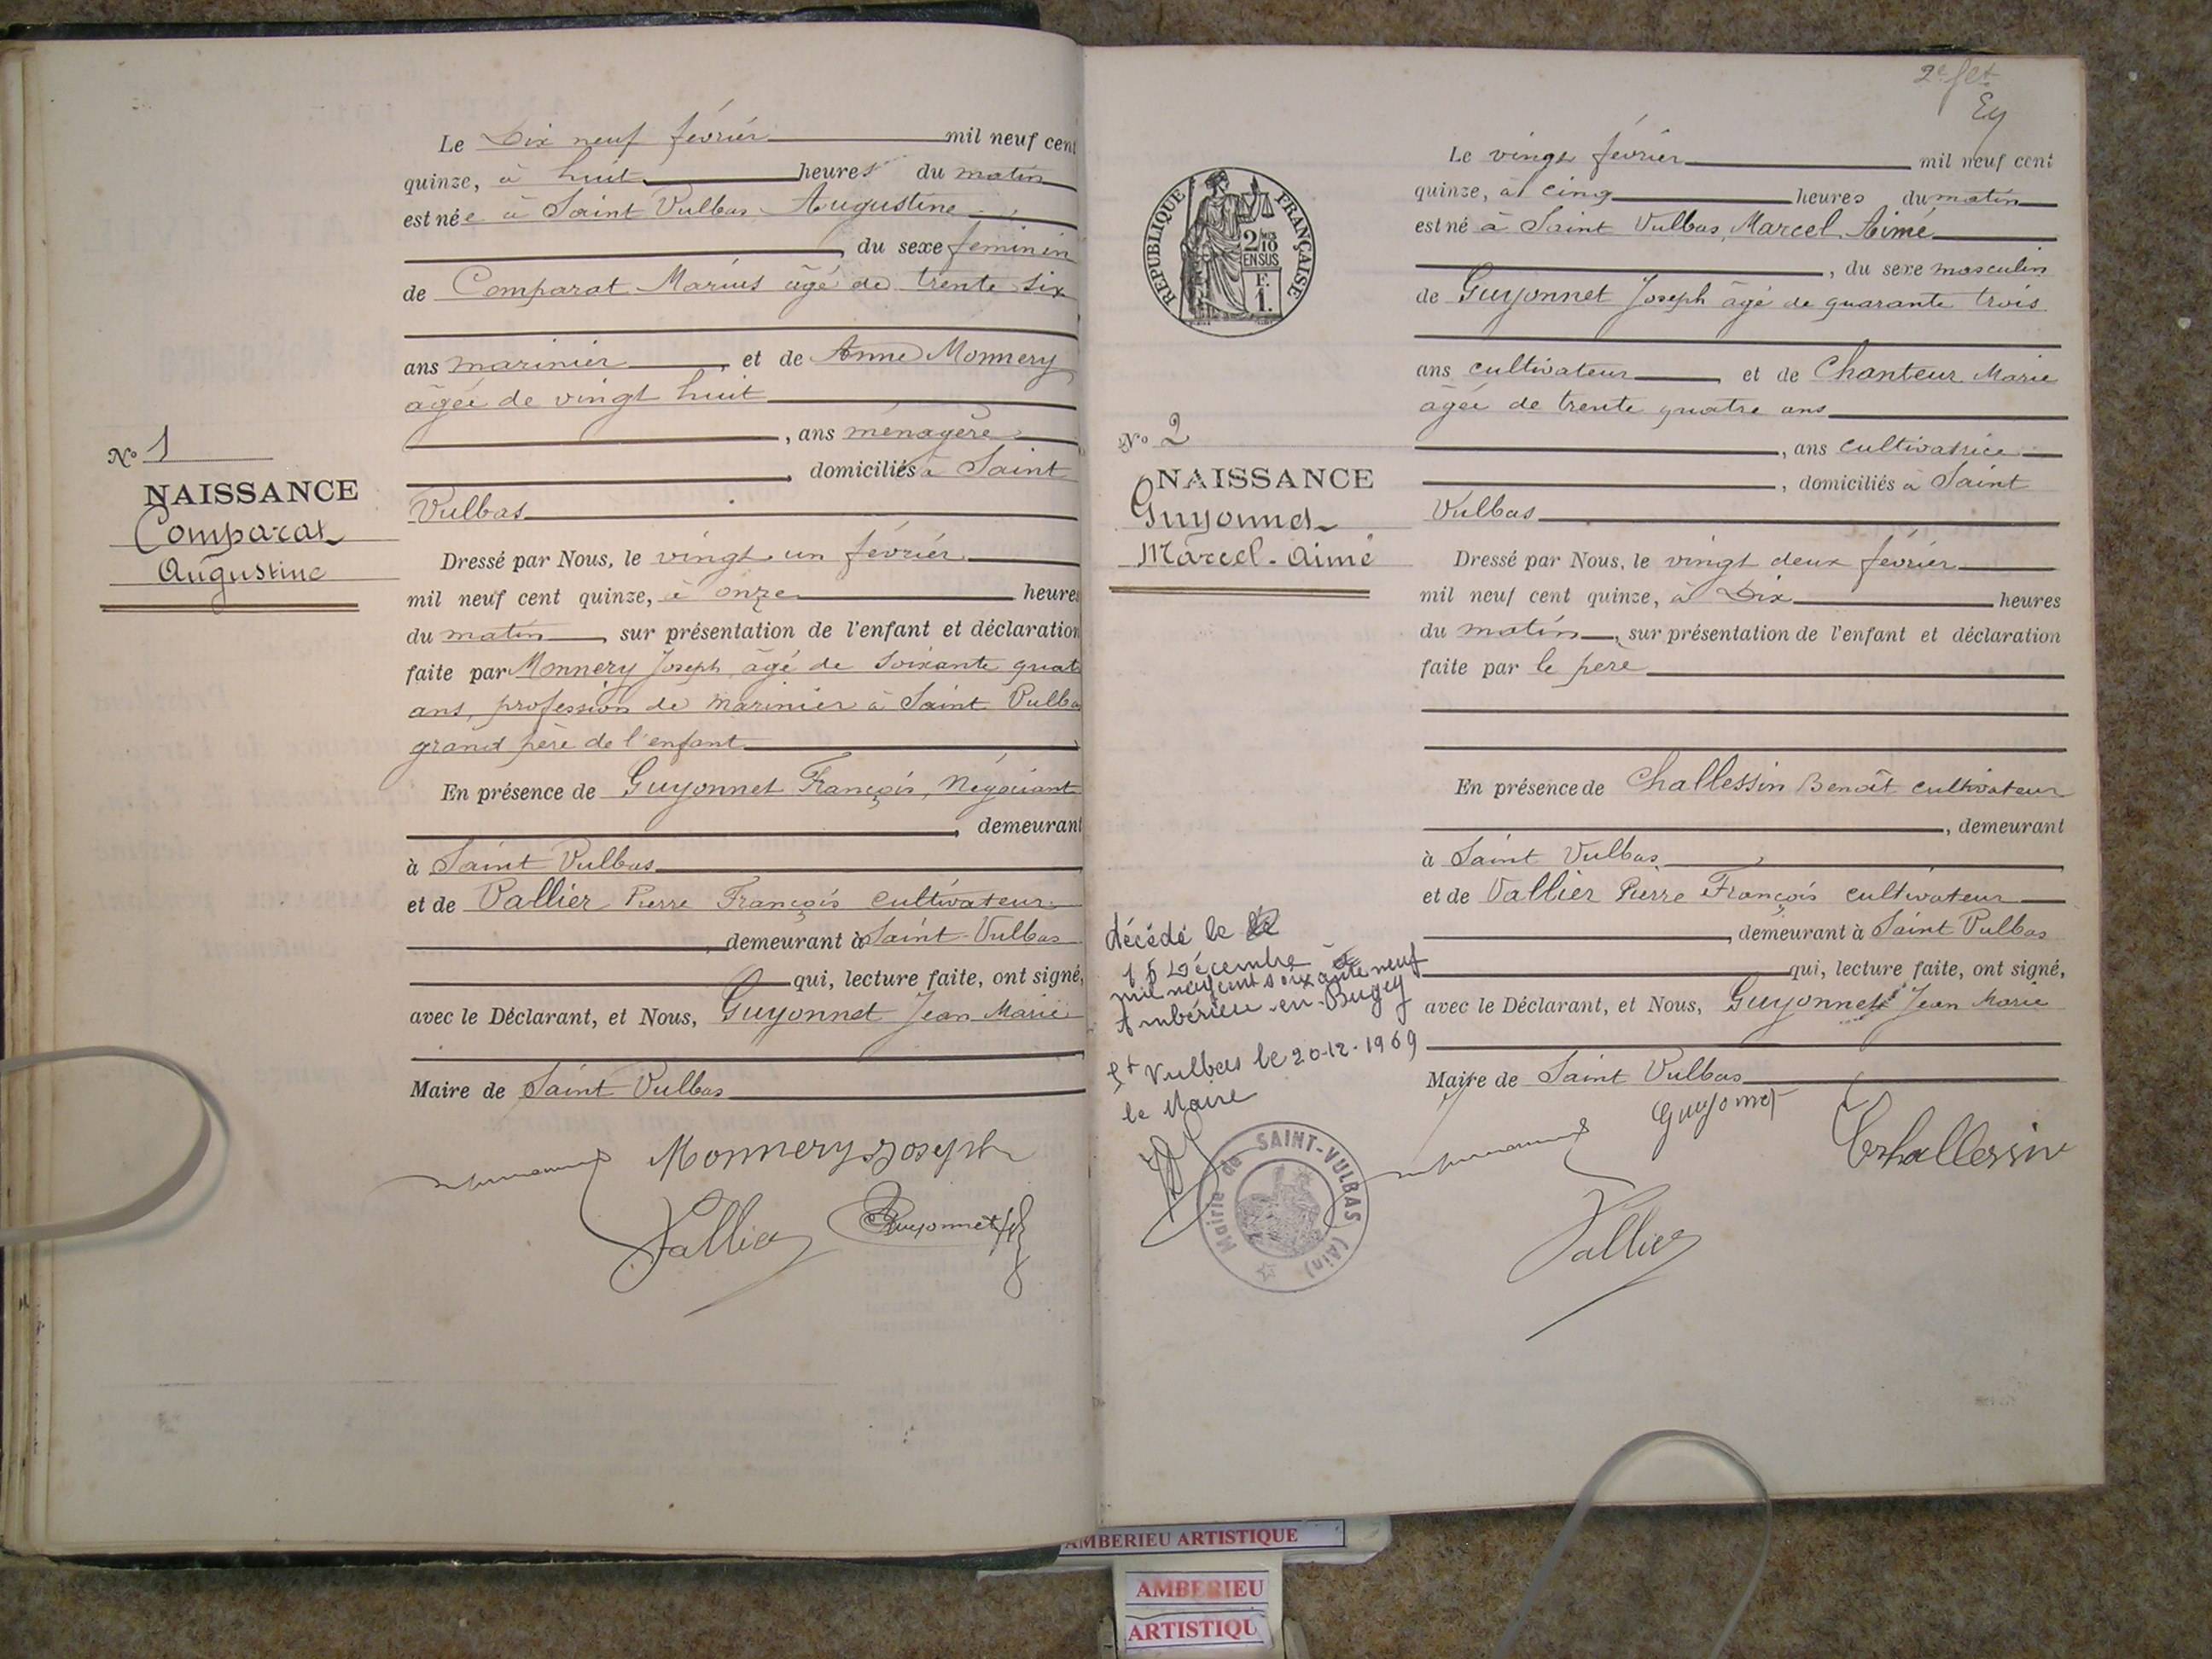 Le Dix neuf février mil neuf cent
quinze, à huit heures du matin
est née à Saint Vulbas Augustine
, du sexe feminin
de Comparat Marius âgé de trente six
ans marinier, et de Anne Monnery
âgée de vingt huit
, ans ménagère
, domiciliés à Saint
Vulbas
No 1
NAISSANCE
Comparat
Augustine
Dressé par Nous, le vingt un février
mil neuf cent quinze, à onze heures
du matin, sur présentation de l'enfant et déclaration
faite par Monnery Joseph, âgé de soixante quat
ans, profession de marinier à Saint Vulba
grand père de l'enfant
En présence de Guyonnet François, Négociant
, demeurant
à Saint Vulbas
et de Vallier Pierre François cultivateur
, demeurant à Saint-Vulbas
qui, lecture faite, ont signé,
avec le Déclarant, et Nous, Guyonnet Jean Marie
Maire de Saint Vulbas
Monnery Joseph
Vallier Guyonnet
2e flt
Ey
RÉPUBLIQUE FRANÇAISE
2 MES
10
EN SUS
F.
1.
Le vingt février mil neuf cent
quinze, à cinq heures du matin
est né à Saint Vulbas, Marcel Aimé
, du sexe masculin
de Guyonnet Joseph âgé de quarante trois
ans cultivateur, et de Chanteur Marie
âgée de trente quatre ans
, ans cultivatrice
, domiciliés à Saint
Vulbas
No 2
NAISSANCE
Guyonnet
Marcel-Aimé
Dressé par Nous, le vingt deux février
mil neuf cent quinze, à Dix heures
du matin, sur présentation de l'enfant et déclaration
faite par le père
En présence de Challessin Benoît cultivateur
, demeurant
à Saint Vulbas
et de Vallier Pierre François cultivateur
, demeurant à Saint Vulbas
qui, lecture faite, ont signé,
avec le Déclarant, et Nous, Guyonnet Jean Marie
Maire de Saint Vulbas
Guyonnet
Challessin
Vallier
décédé le
15 Décembre
mil neuf cent soixante neuf
Ambérieu-en-Bugey
St Vulbas le 20-12-1969
le Maire
Mairie de SAINT-VULBAS (Ain)
AMBERIEU ARTISTIQUE
AMBERIEU
ARTISTIQU